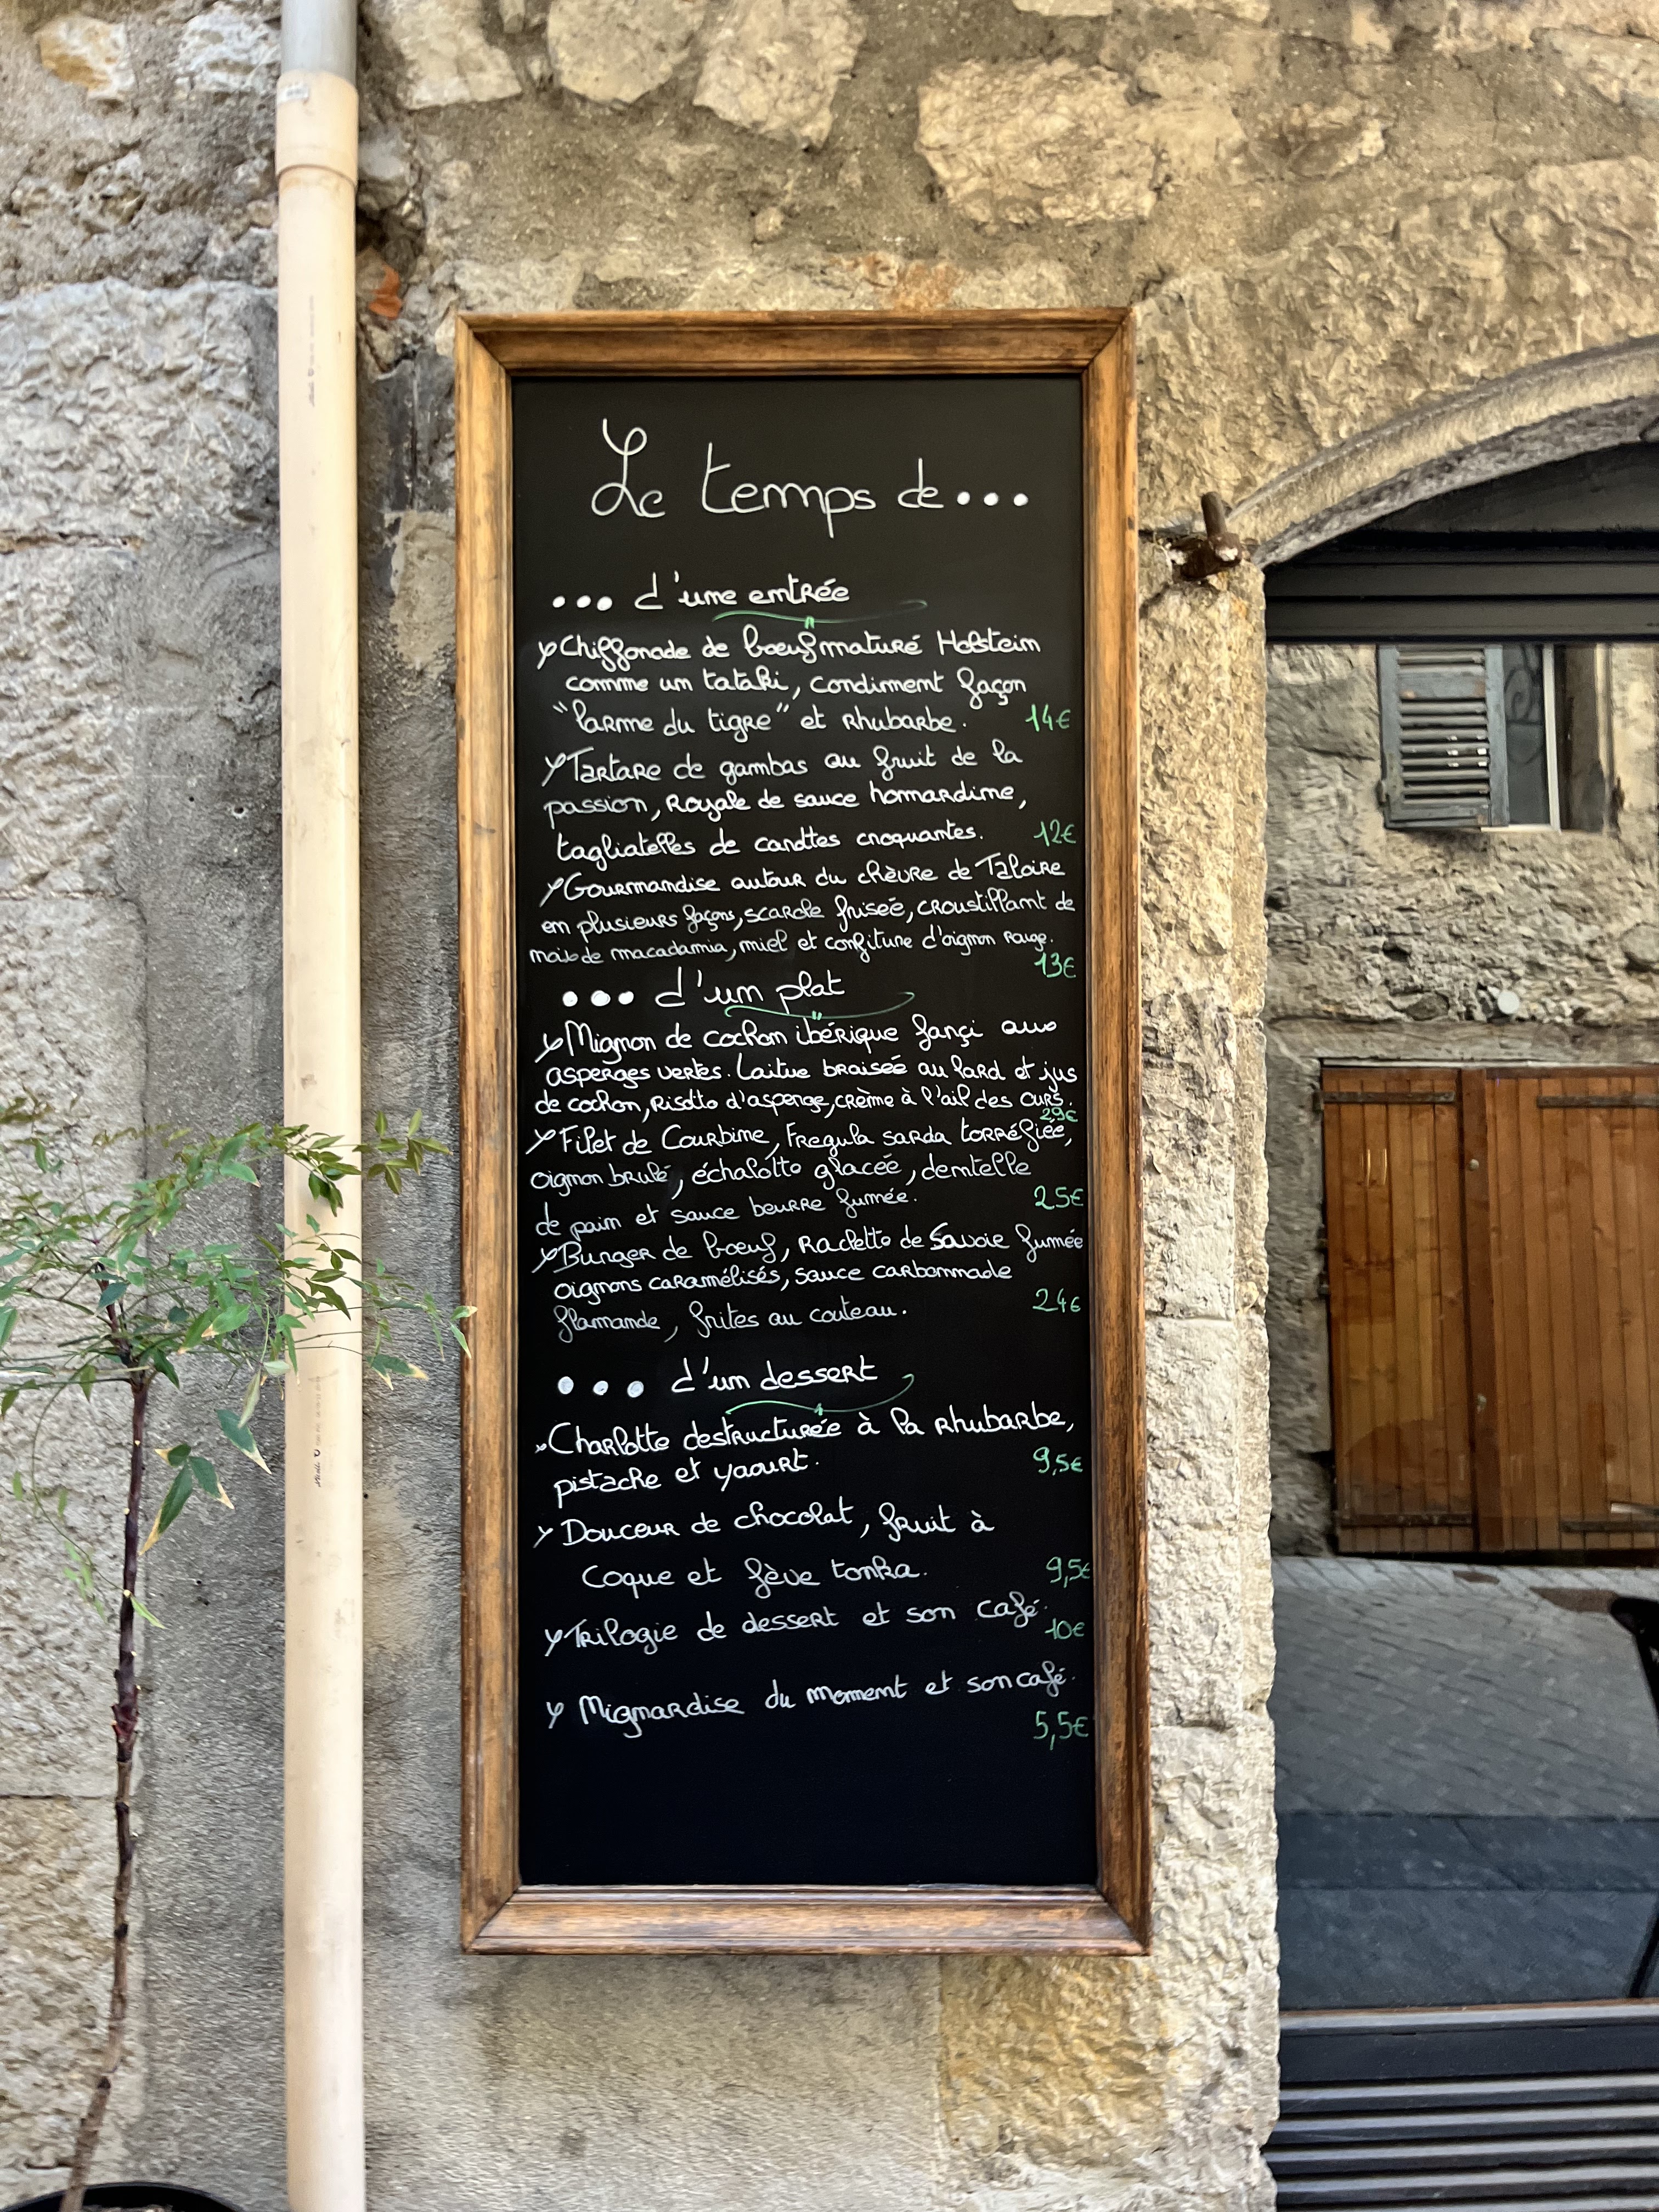 Le temps de...
... d'une entrée
Chiffonade de bœuf maturé Holstein
comme un tataki, condiment façon
"larme du tigre" et rhubarbe. 14€
Tartare de gambas au fruit de la
passion, Royale de sauce homardine,
tagliatelles de carottes croquantes. 12€
Gourmandise autour du chèvre de Taloire
en plusieurs façons, scarole frisée, croustillant de
de macadamia, miel et confiture d'oignon rouge.
13€
... d'un plat
Mignon de cochon ibérique farçi aux
asperges vertes. Laitue braisée au lard et jus
de cochon, Risotto d'asperge, crème à l'ail des ours.
29€
Filet de Courbine, Fregula sarda torréfiée,
oignon brulé, échalotte glacée, dentelle
de pain et sauce beurre fumée. 25€
Burger de bœuf, Raclette de Savoie fumée
oignons caramélisés, sauce carbonnade
flamande, frites au couteau. 24€
... d'un dessert
Charlotte destructurée à la rhubarbe,
pistache et yaourt. 9,5€
Douceur de chocolat, fruit à
Coque et fève tonka. 9,5€
Trilogie de dessert et son café.
10€
Mignardise du moment et son café.
5,5€